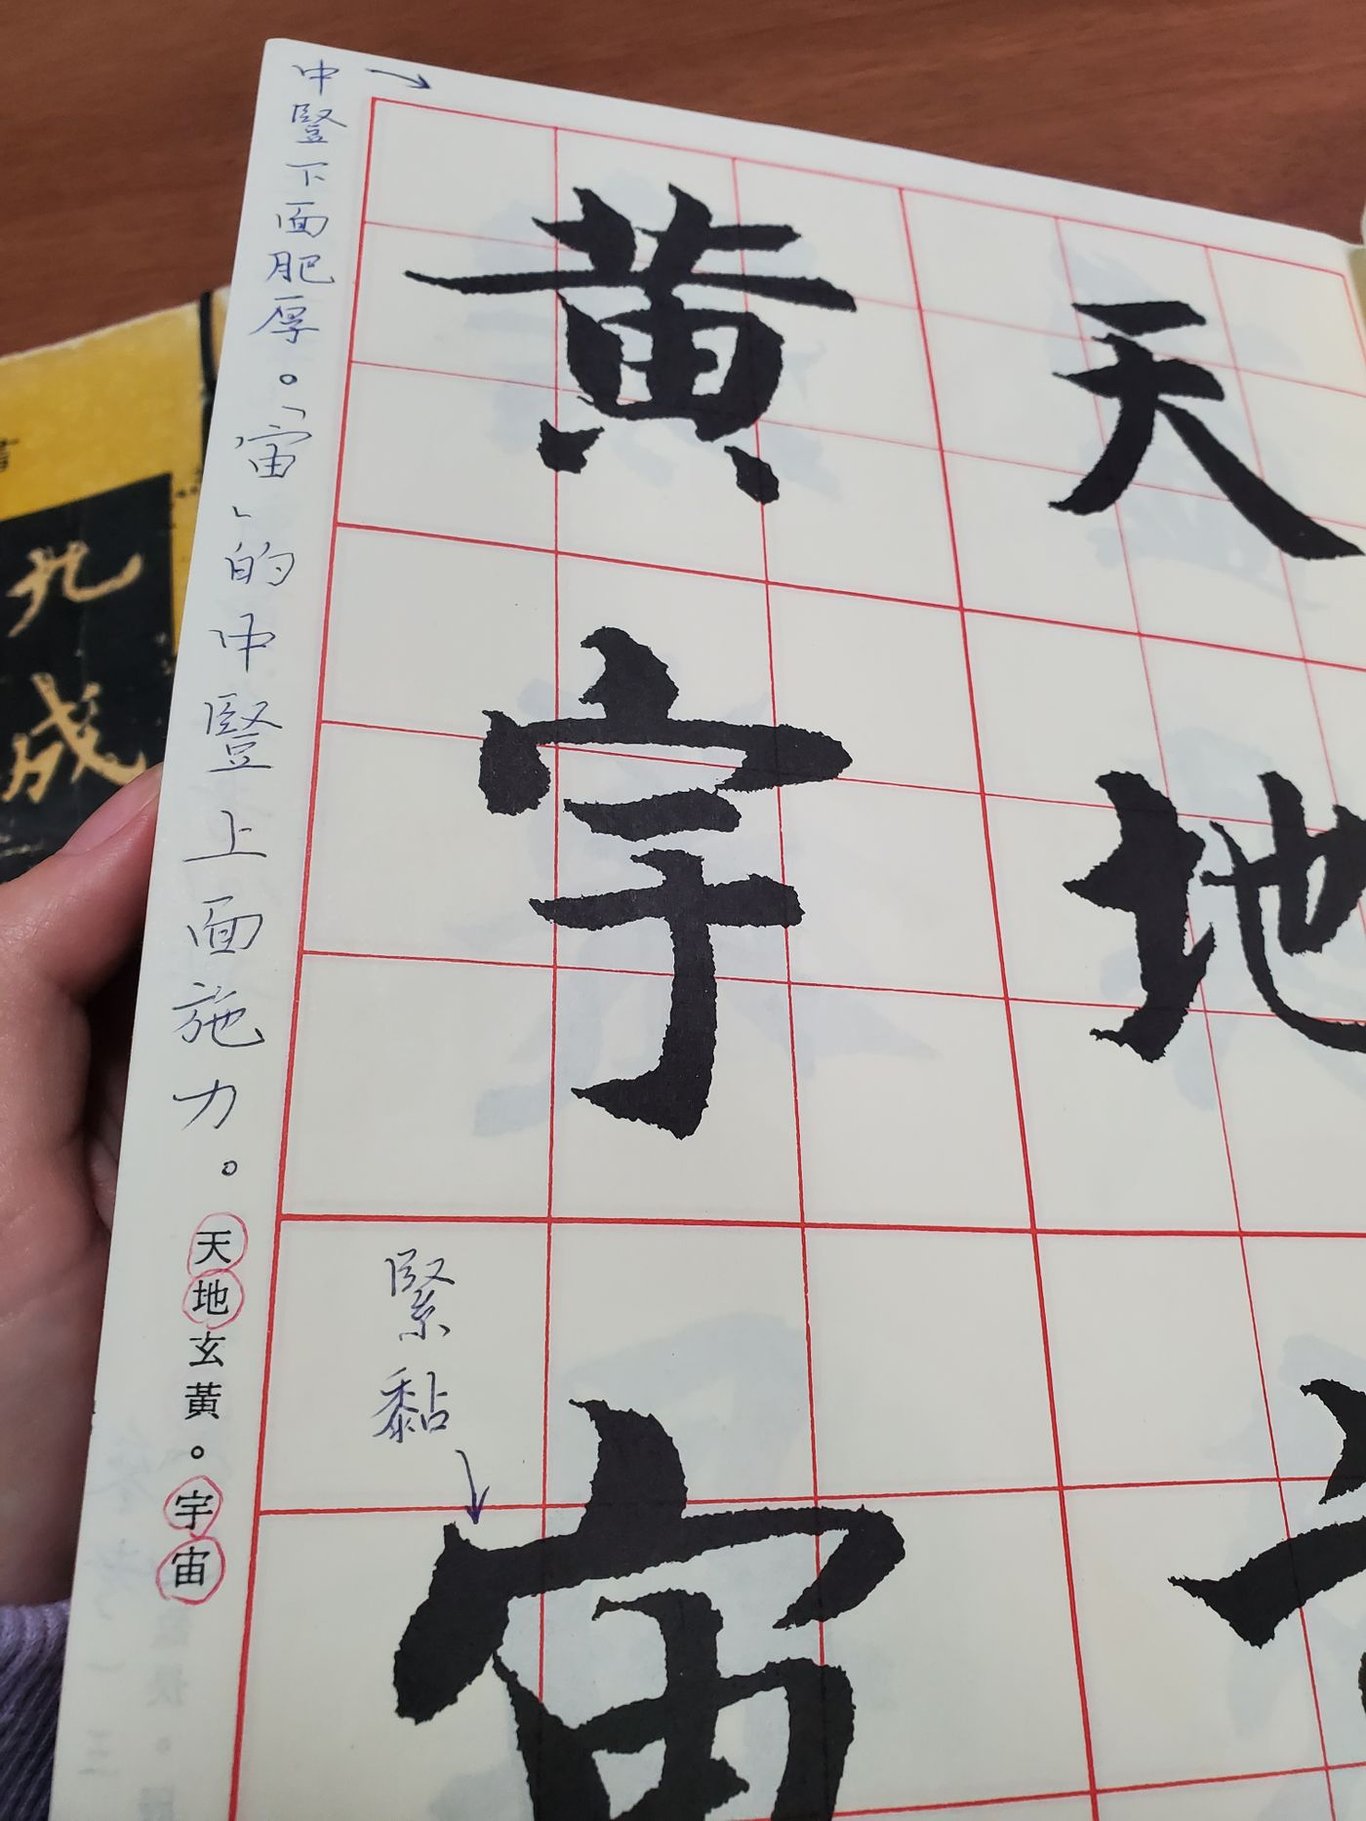 天地
黄宇宙
緊黏
中豎下面肥厚。「宙」的中豎上面施力。
天地玄黃。宇宙
九成